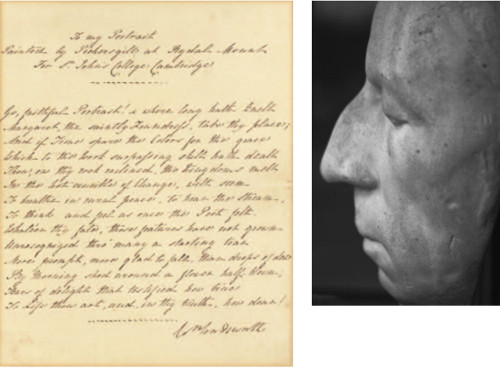 To my Portrait
Painted by Pickersgill at Rydal Mount
For St. John's College Cambridge
Go, faithful Portrait! & where long hath knelt
Margaret, the saintly Foundress, take thy place;
And if Time spare the Colors for the grace
Which to the Work surpassing skill hath dealt
Thou, on thy rock reclined, tho' Kingdoms melt
In the hot crucible of Change, wilt seem
To breathe in rural peace, to hear the stream,
To think and feel as once the Poet felt.
Whate'er thy fate, those features have not grown
Unrecognized thro' many a starting tear
More prompt, more glad to fall, than drops of dew
By Morning shed around a flower half-blown;
Tears of delight that testified how true
To Life thou art, and, in thy truth, how dear!
Wm Wordsworth